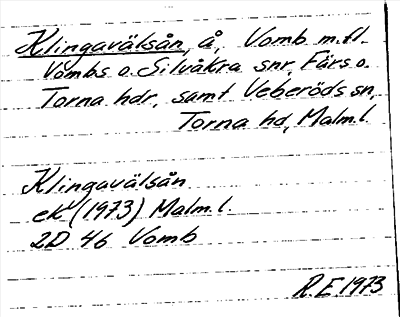 Klingavälsån, å, Vomb m.fl.
Vombs o. Silvåkra snr, Färs o.
Torna hdr, samt Veberöds sn,
Torna hd, Malm.l.
Klingavälsån
ek (1973) Malm.l.
2D 46 Vomb
R.E 1973